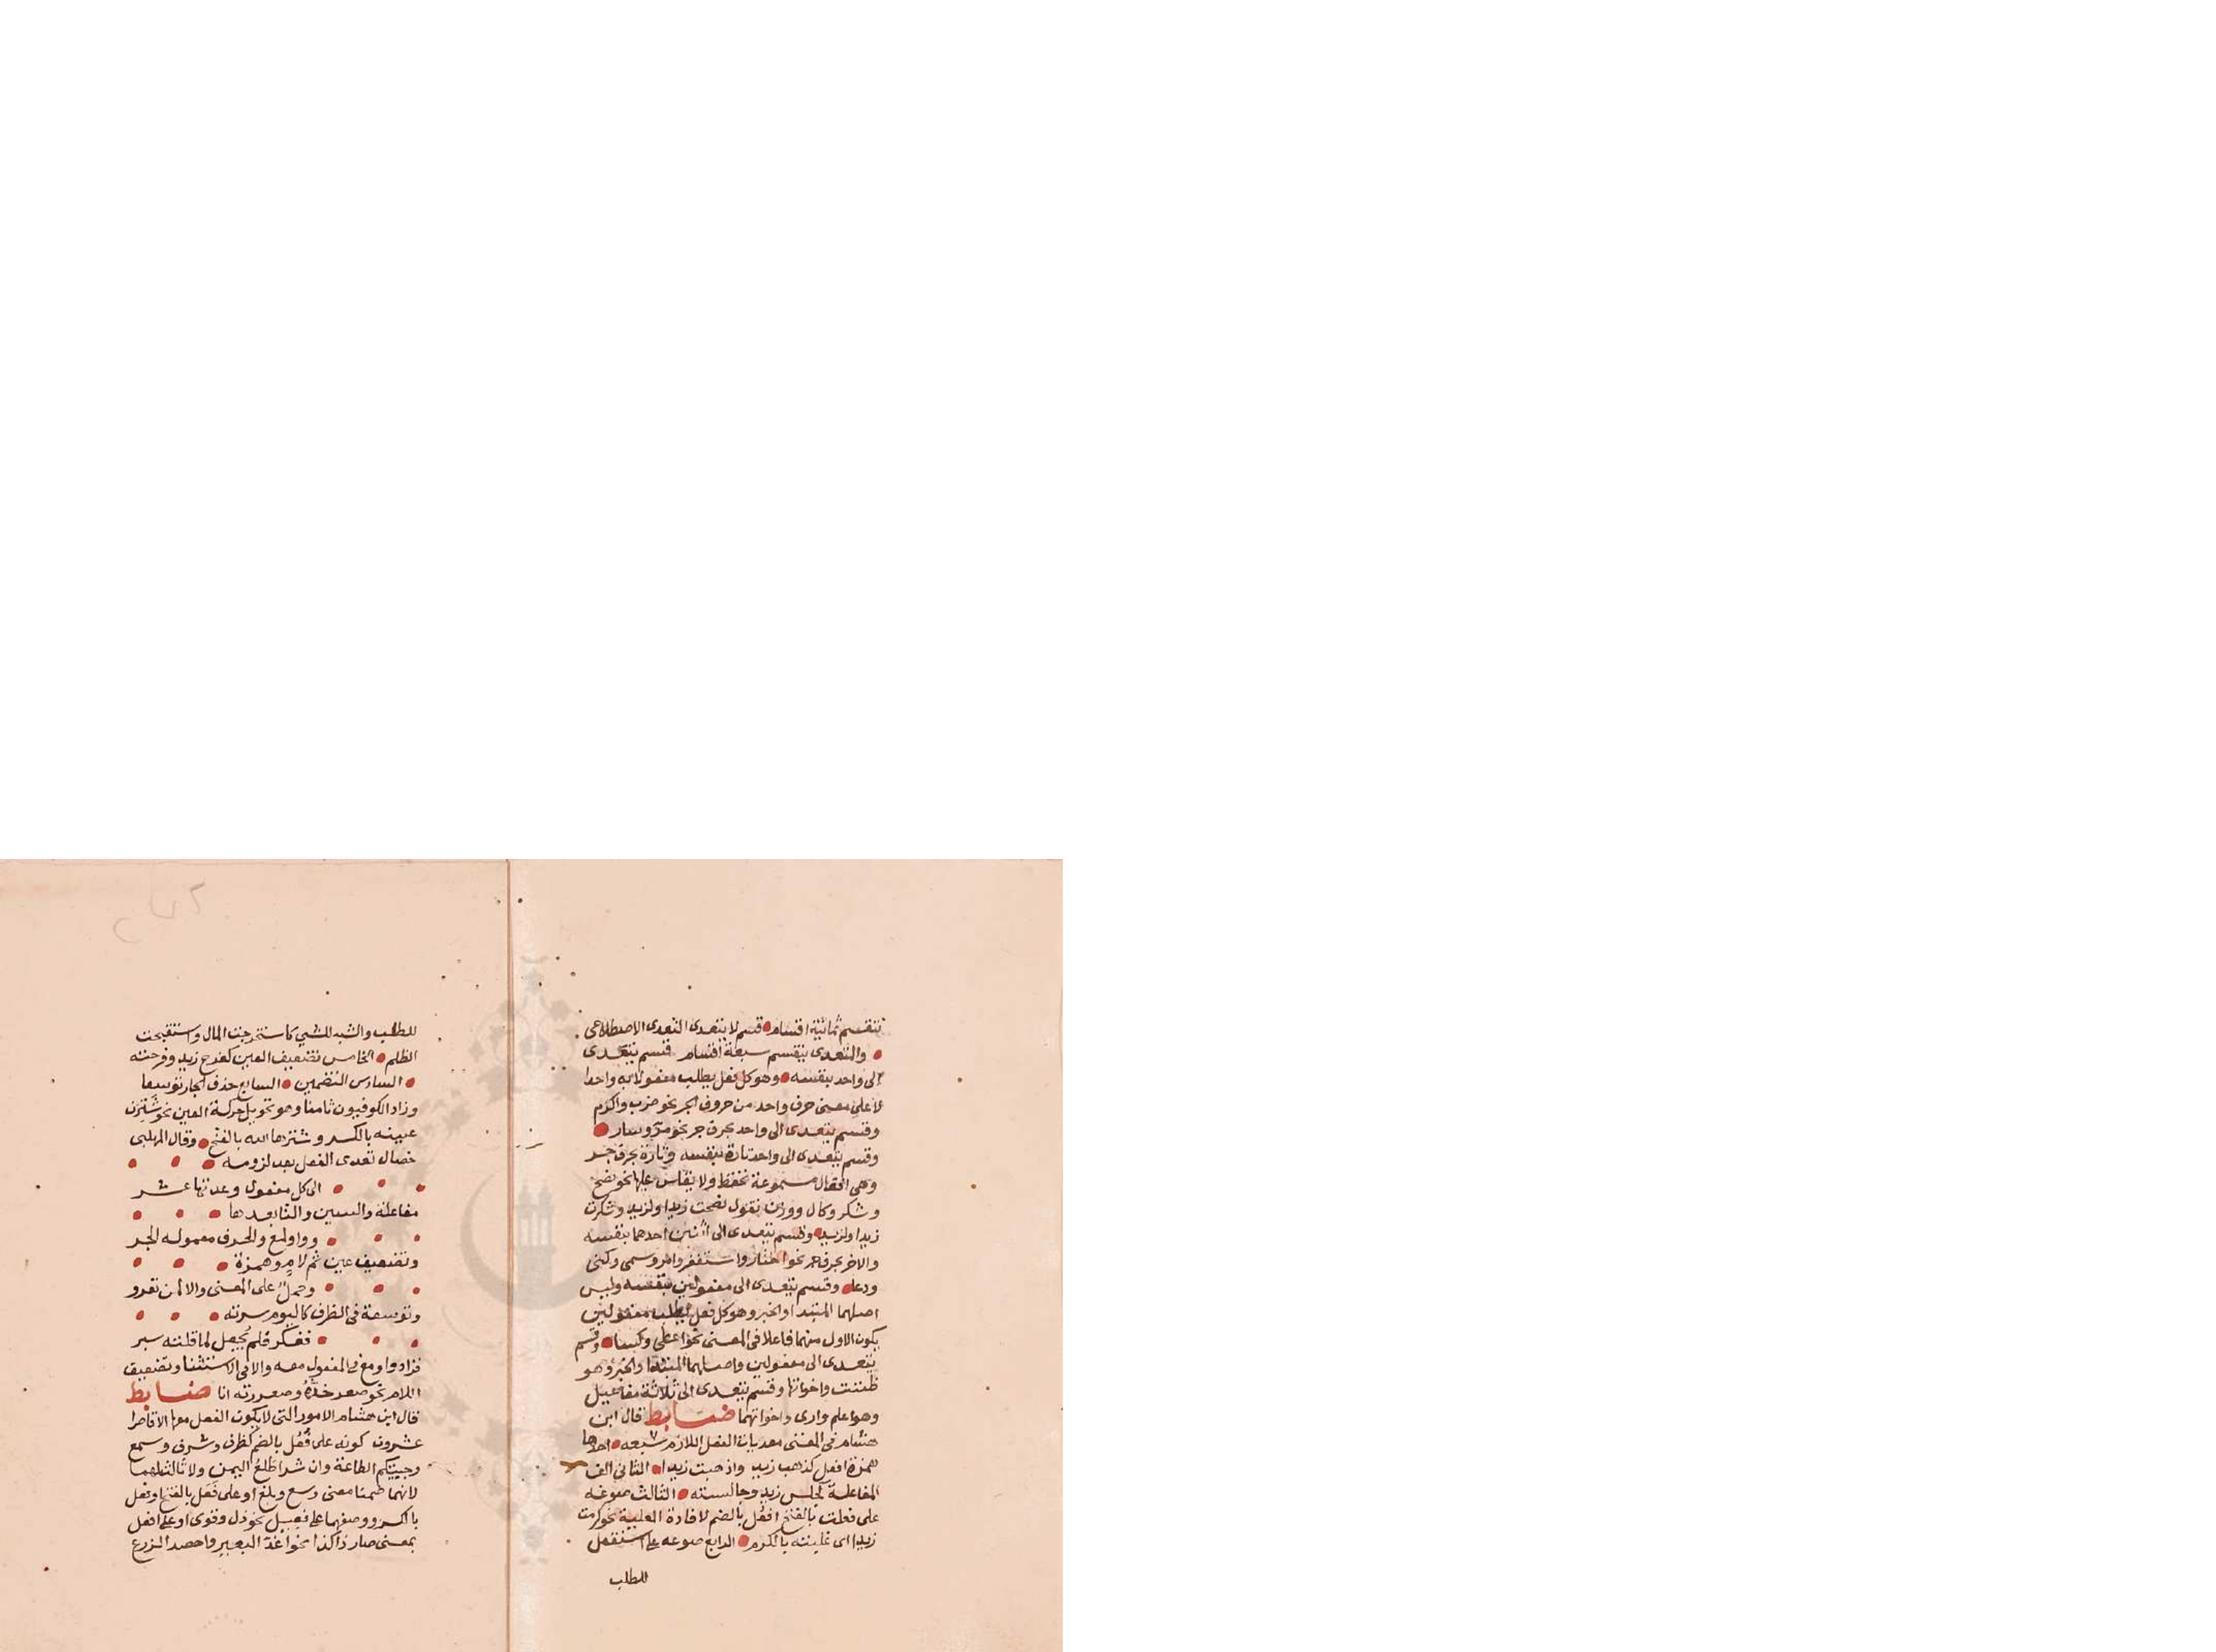 تنقسم ثمانية اقسام قسم لا يتعدى التعدى الاصطلاحى
والمتعدى ينقسم سبعة اقسام قسم يتعدى
الى واحد بنفسه وهو كل فعل يطلب مفعولا به واحدا
لا على معنى حرف واحد من حروف الجر نحو ضرب واكرم
وقسم يتعدى الى واحد بحرف جر نحو مر وسار
وقسم يتعدى الى واحد تارة بنفسه وتارة بحرف جر
وهى افعال مسموعة تحفظ ولا يقاس عليها نحو نصح
وشكر وكال ووزن تقول نصحت زيدا ولزيد وشكرت
زيدا ولزيد وقسم يتعدى الى اثنين احدهما بنفسه
والاخر بحرف جر نحو اختار واستغفر وامر وسمى وكنى
ودعا وقسم يتعدى الى مفعولين بنفسه وليس
اصلهما المبتدا والخبر وهو كل فعل يطلب مفعولين
يكون الاول منهما فاعلا فى المعنى نحو اعطى وكسا وقسم
يتعدى الى مفعولين واصلهما المبتدا والخبر وهو
ظننت واخواتها وقسم يتعدى الى ثلاثة مفاعيل
وهو اعلم وارى واخواتهما ضابط قال ابن
هشام فى المغنى معديات الفعل اللازم سبعه احدها
همزة افعل كذهب زيد واذهبت زيدا الثانى الف
المفاعلة كجلس زيد وجالسته الثالث صوغه
على فعلت بالفتح افعل بالضم لافادة الغلبة نحو كرمت
زيدا اى غلبته بالكرم الرابع صوغه على استفعل
للطلب
للطلب والنسبة للشى كاستخرجت المال واستقبحت
الظلم الخامس تضعيف العين كفرح زيد وفرحته
السادس التضمين السابع حذف الجار توسعا
وزاد الكوفيون ثامنا وهو تحويل حركة العين نحو شترت
عينه بالكسر وشترها الله بالفتح وقال المهلبى
خصال تعدى الفعل بعد لزومه
الى كل مفعول وعدتها عشر
مفاعلة والسين والتا بعدها
وواو لمع والحرف معموله الجر
وتضعيف عين ثم لام وهمزة
وحمل على المعنى والا لمن تقرو
وتوسعة فى الظرف كاليوم سرته
ففكر فلم يجعل لما قلته سبر
فزاد واو مع فى المفعول معه والا فى الاستثنا وتضعيف
اللام نحو صعر خده وصعررته انا ضابط
قال ابن هشام الامور التى لا يكون الفعل معها الا قاصرا
عشرون كونه على فعل بالضم كظرف وشرف وسمع
رحبتكم الطاعة وان بشرا طلع اليمن ولا ثالث لهما
لانهما ضمنا معنى وسع وبلغ او على فعل بالفتح او فعل
بالكسر ووصفهما على فعيل نحو ذل وقوى او على افعل
بمعنى صار ذا كذا نحو اغد البعير واحصد الزرع